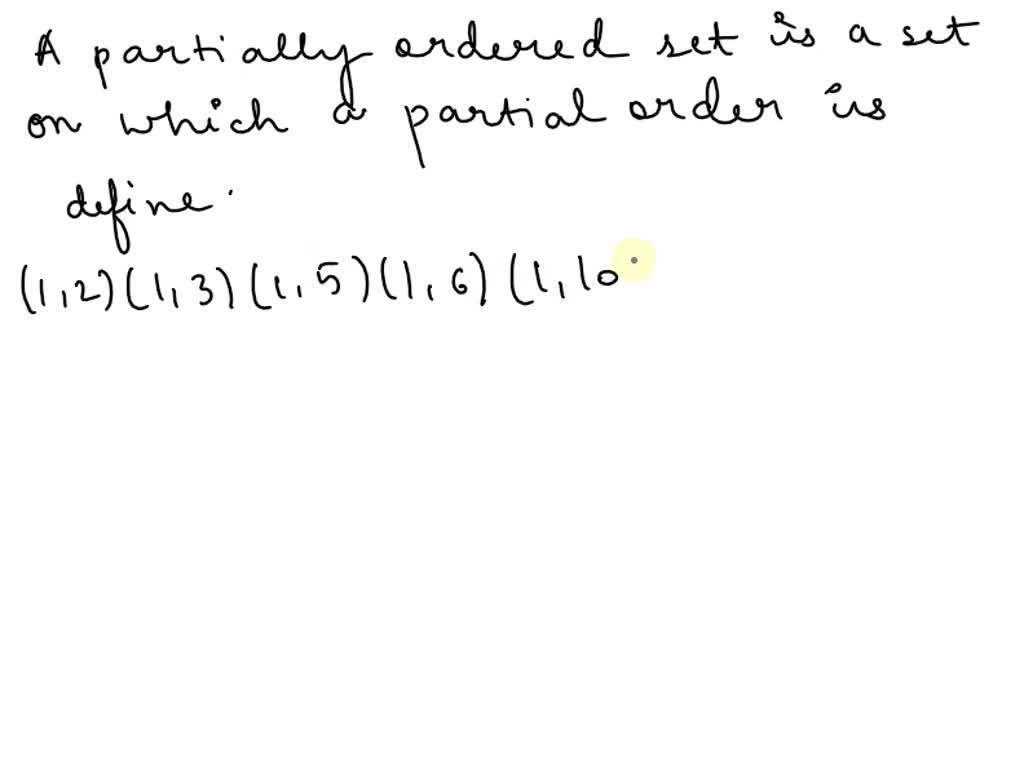 A partially ordered set is a set
on which a partial order is
define.
(1,2)(1,3)(1,5)(1,6)(1,10